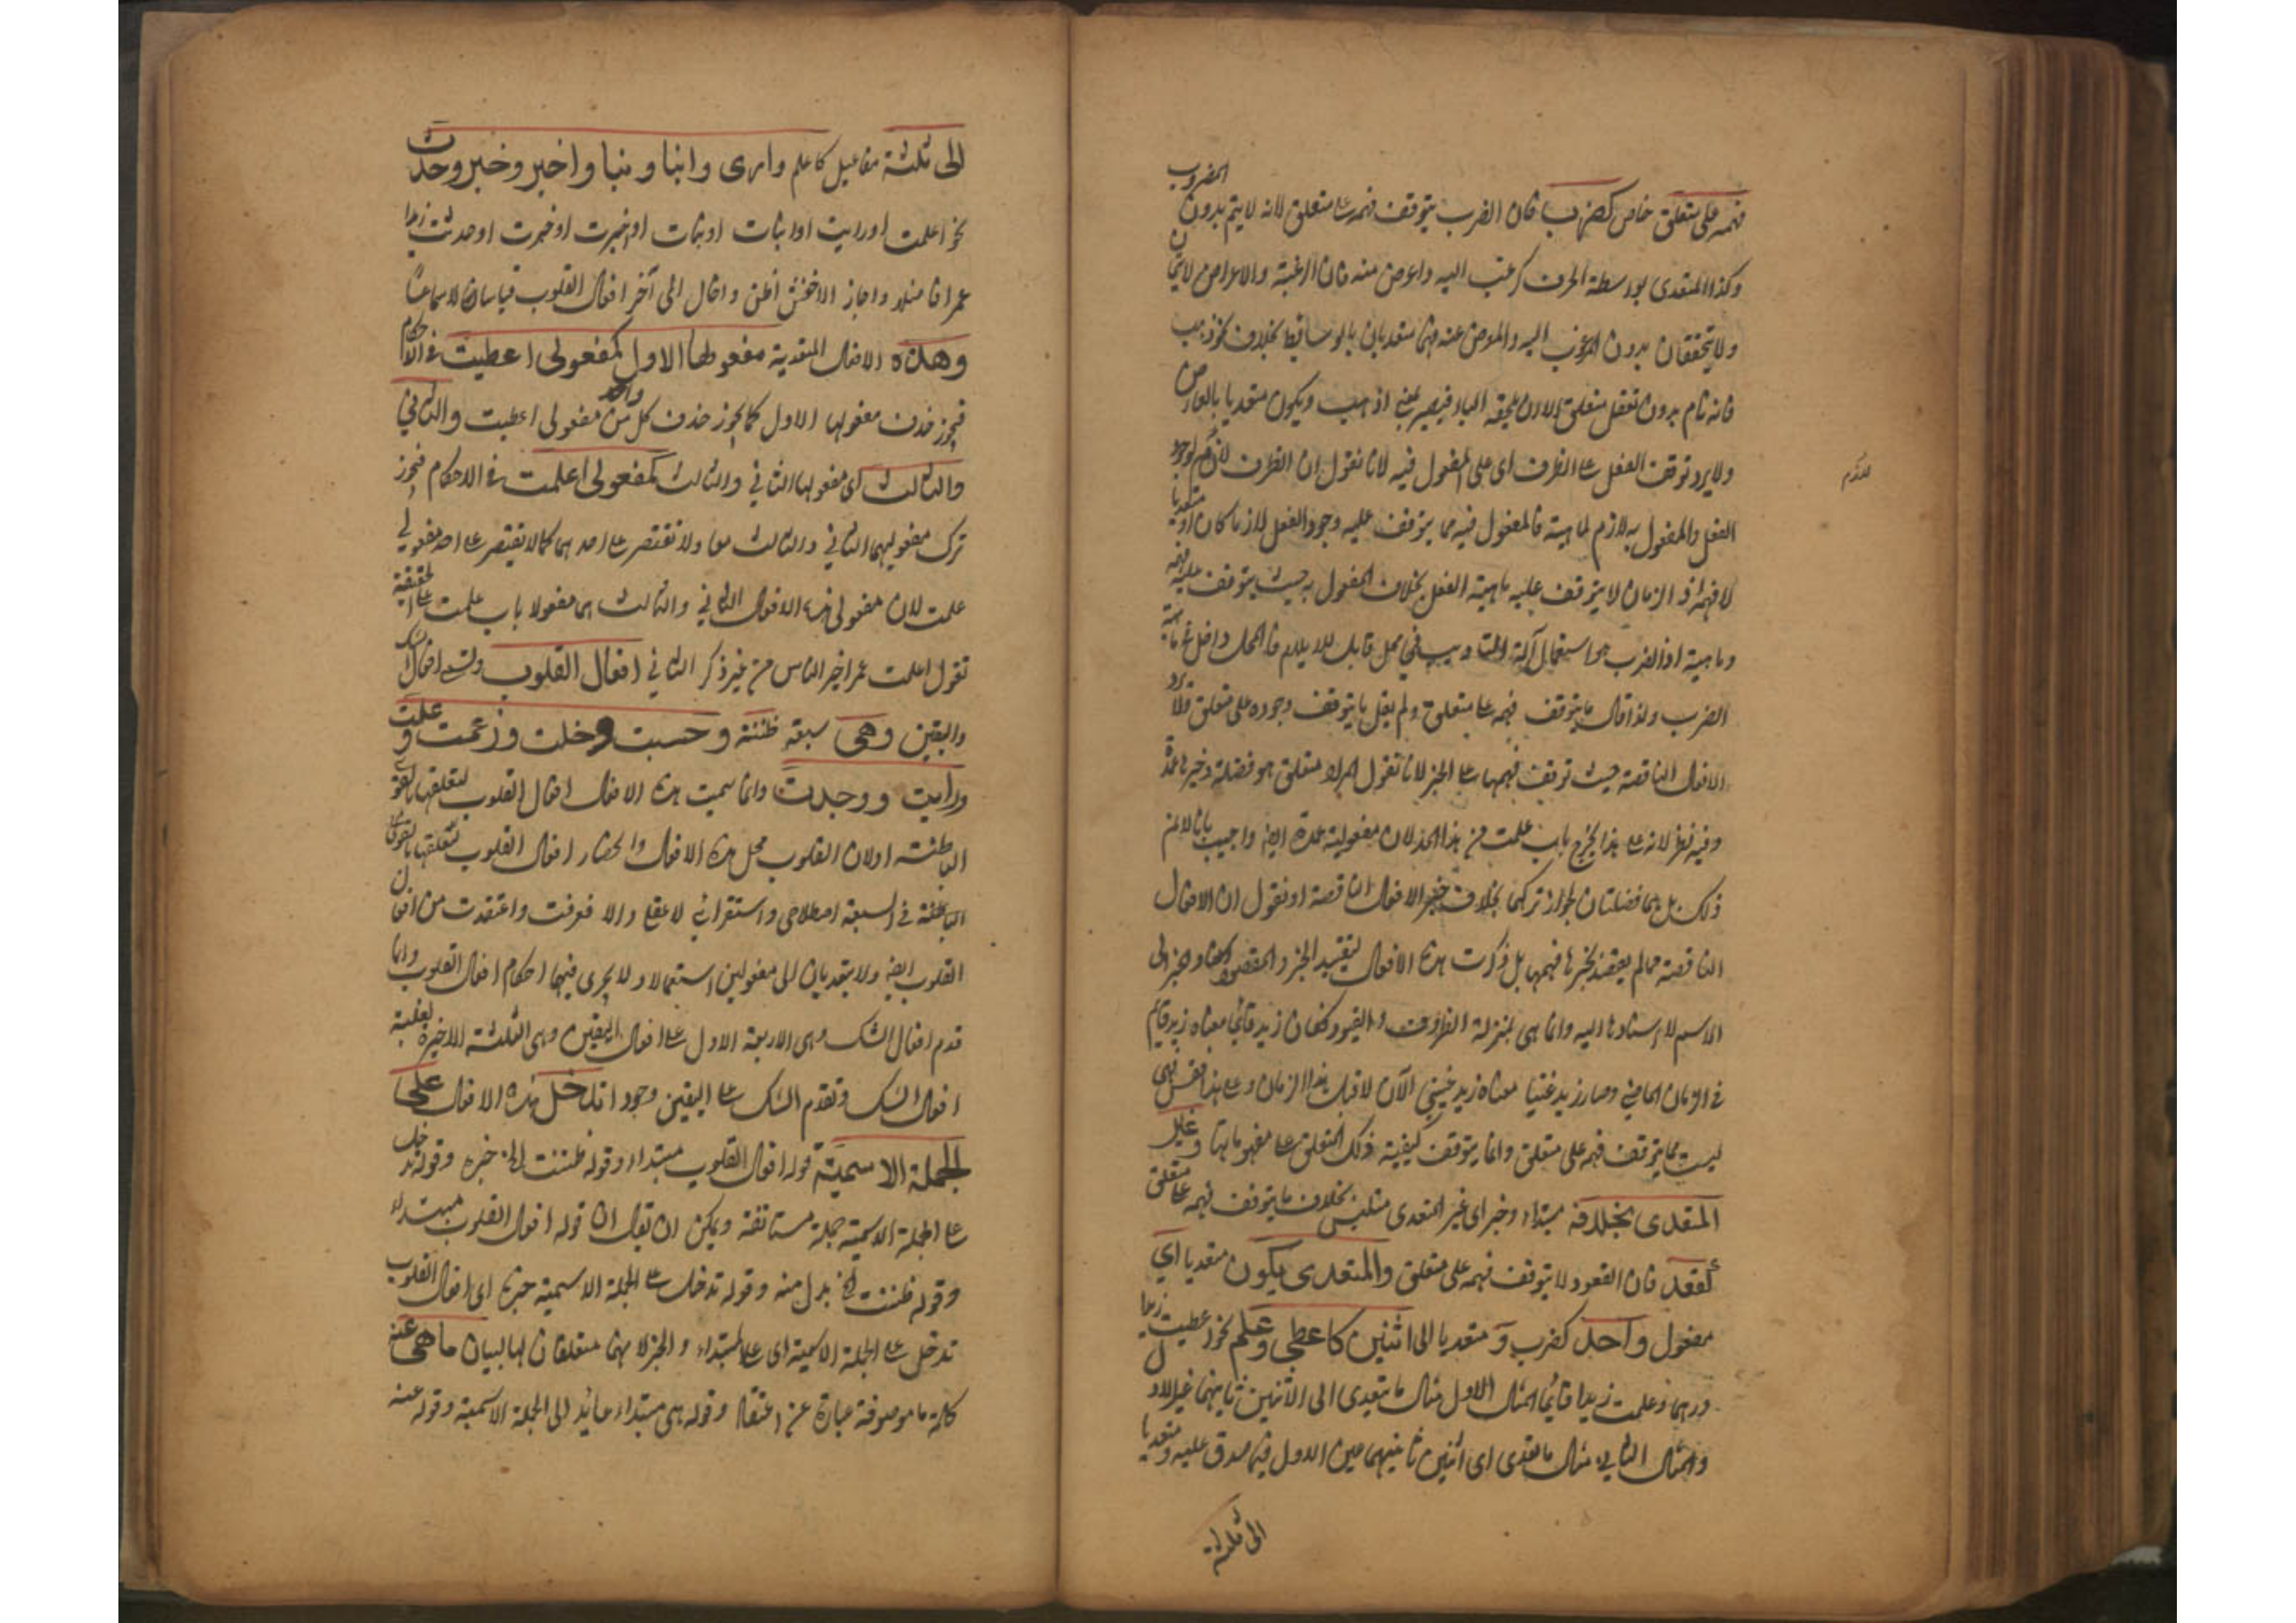 فهمه على متعلق خاص كضرب فان الضرب يتوقف فهمه على متعلق لانه لا يتم بدون المضروب
وكذا المتعدى بواسطة الحرف كرغب اليه واعرض عنه فان الرغبة والاعراض لا يتمان
ولا يتحققان بدون المرغوب اليه والمعرض عنه فهما متعديان بالوسائط بخلاف نحو ذهب
فانه تام بدون تعقل متعلق الا ان يلحقه الباء فيصير بمعنى اذهب ويكون متعديا بالعارض
ولا يرد توقف الفعل على الظرف اى على المفعول فيه لانا نقول ان الظرف لازم لوجود
الفعل والمفعول به لازم لماهيته فالمفعول فيه مما يتوقف عليه وجود الفعل لازما كان او متعديا
لا فهمه اذ الزمان لا يتوقف عليه ماهية الفعل بخلاف المفعول به حيث يتوقف عليه فهمه
وماهيته اذ الضرب هو استعمال آلة التاديب فى محل قابل للايلام فالمحل داخل فى ماهية
الضرب ولذا قال ما يتوقف فهمه على متعلق ولم يقل ما يتوقف وجوده على متعلق فلا يرد
الافعال الناقصة حيث توقف فهمها على الخبر لانا نقول المراد متعلق هو فضلة وخبرها عمدة
وفيه نظر لانه على هذا يخرج باب علمت من هذا الحد لان مفعوليه عمدة ايضا واجيب بانا لا نم
ذلك بل هما فضلتان لجواز تركهما بخلاف خبر الافعال الناقصة او نقول ان الافعال
الناقصة مما لم يقصد بخبرها فهمها بل ذكرت هذه الافعال لتقييد الخبر والمقصود اسناد الخبر الى
الاسم لا اسنادها اليه وانما هى بمنزلة الظروف والقيود فكان زيد قائما معناه زيد قائم
فى الزمان الماضى وصار زيد غنيا معناه زيد غنى الآن لا قبل هذا الزمان وعلى هذا فقس فهى
ليست مما يتوقف فهمه على متعلق وانما يتوقف كيفية ذلك المتعلق على مفهوماتها وغير
المتعدى بخلافه مبتداء وخبر اى غير المتعدى متلبس بخلاف ما يتوقف فهمه على متعلق
كقعد فان القعود لا يتوقف فهمه على متعلق والمتعدى يكون متعديا اى
مفعول واحد كضرب و متعديا الى اثنين كاعطى وعلم نحو اعطيت زيدا
درهما وعلمت زيدا قائما المثال الاول مثال ما يتعدى الى الاثنين ثانيهما غير الاول
والمثال الثانى مثال ما تعدى اى اثنين ثانيهما عين الاول فيما صدق عليه ومتعديا
الى ثلثة
الى ثلثة مفاعيل كاعلم وارى وانبا ونبا واخبر وخبر وحدث
نحو اعلمت اوراىت اوانبات اونبات اواخبرت اوخبرت اوحدثت زيدا
عمرا فاضلا واجاز الاخفش اظن واخال الى آخر افعال القلوب قياسا لا سماعا
وهذه الافعال المتعدية مفعولها الاول كمفعولى اعطيت فى الاحكام
فيجوز حذف مفعولها الاول كما يجوز حذف كل واحد من مفعولى اعطيت والثانى
والثالث اى مفعولها الثانى والثالث كمفعولى اعلمت فى الاحكام فيجوز
ترك مفعوليهما الثانى والثالث معا ولا تقتصر على احدهما كما لا يقتصر على احد مفعولى
علمت لان مفعولى هذه الافعال الثانى والثالث هما مفعولا باب علمت على الحقيقة
تقول اعلمت عمرا خير الناس من غير ذكر الثانى افعال القلوب وتسمى افعال الشك
واليقين وهى سبعة ظننت وحسبت وخلت وزعمت وعلمت
ورايت ووجدت وانما سميت هذه الافعال افعال القلوب لتعلقها بالقوة
الباطنة اولان القلوب محل هذه الافعال وانحصار افعال القلوب لتعلقها بالقوى
الباطنة فى السبعة اصطلاحى واستقرائى لا عقلى والا فعرفت واعتقدت من افعال
القلوب ايضا ولا يتعديان الى مفعولين استعمالا ولا يجرى فيهما احكام افعال القلوب وانما
قدم افعال الشك وهى الاربعة الاول على افعال اليقين وهى الثلثة الاخيرة لغلبة
افعال الشك وتقدم الشك على اليقين وجودا تدخل هذه الافعال على
الجملة الاسمية قوله افعال القلوب مبتداء وقوله ظننت الخ خبره وقوله تدخل
على الجملة الاسمية جملة مستانفة ويمكن ان يقال ان قوله افعال القلوب مبتداء
وقوله ظننت الخ بدل منه وقوله تدخل على الجملة الاسمية خبره اى افعال القلوب
تدخل على الجملة الاسمية اى على المبتداء والخبر لانهما متعلقان لها لبيان ما هى عنه
كلمة ما موصوفة عبارة عن اعتقاد وقوله هى مبتداء عائد الى الجملة الاسمية وقوله عنه